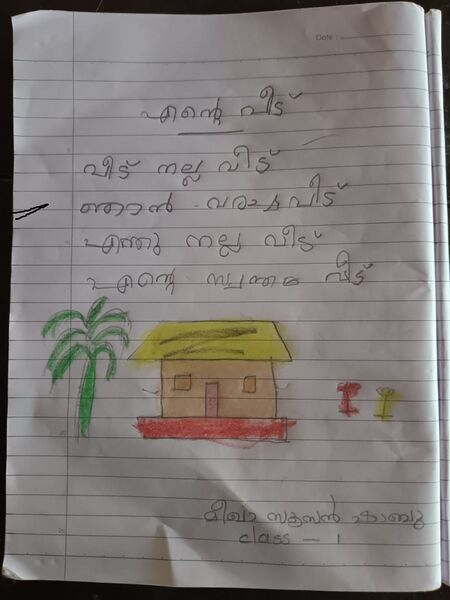 Date :
എന്റെ വീട്
വീട് നല്ല വീട്
ഞാൻ വരച്ച വീട്
എന്തു നല്ല വീട്
എന്റെ സ്വന്തം വീട്
class - 1